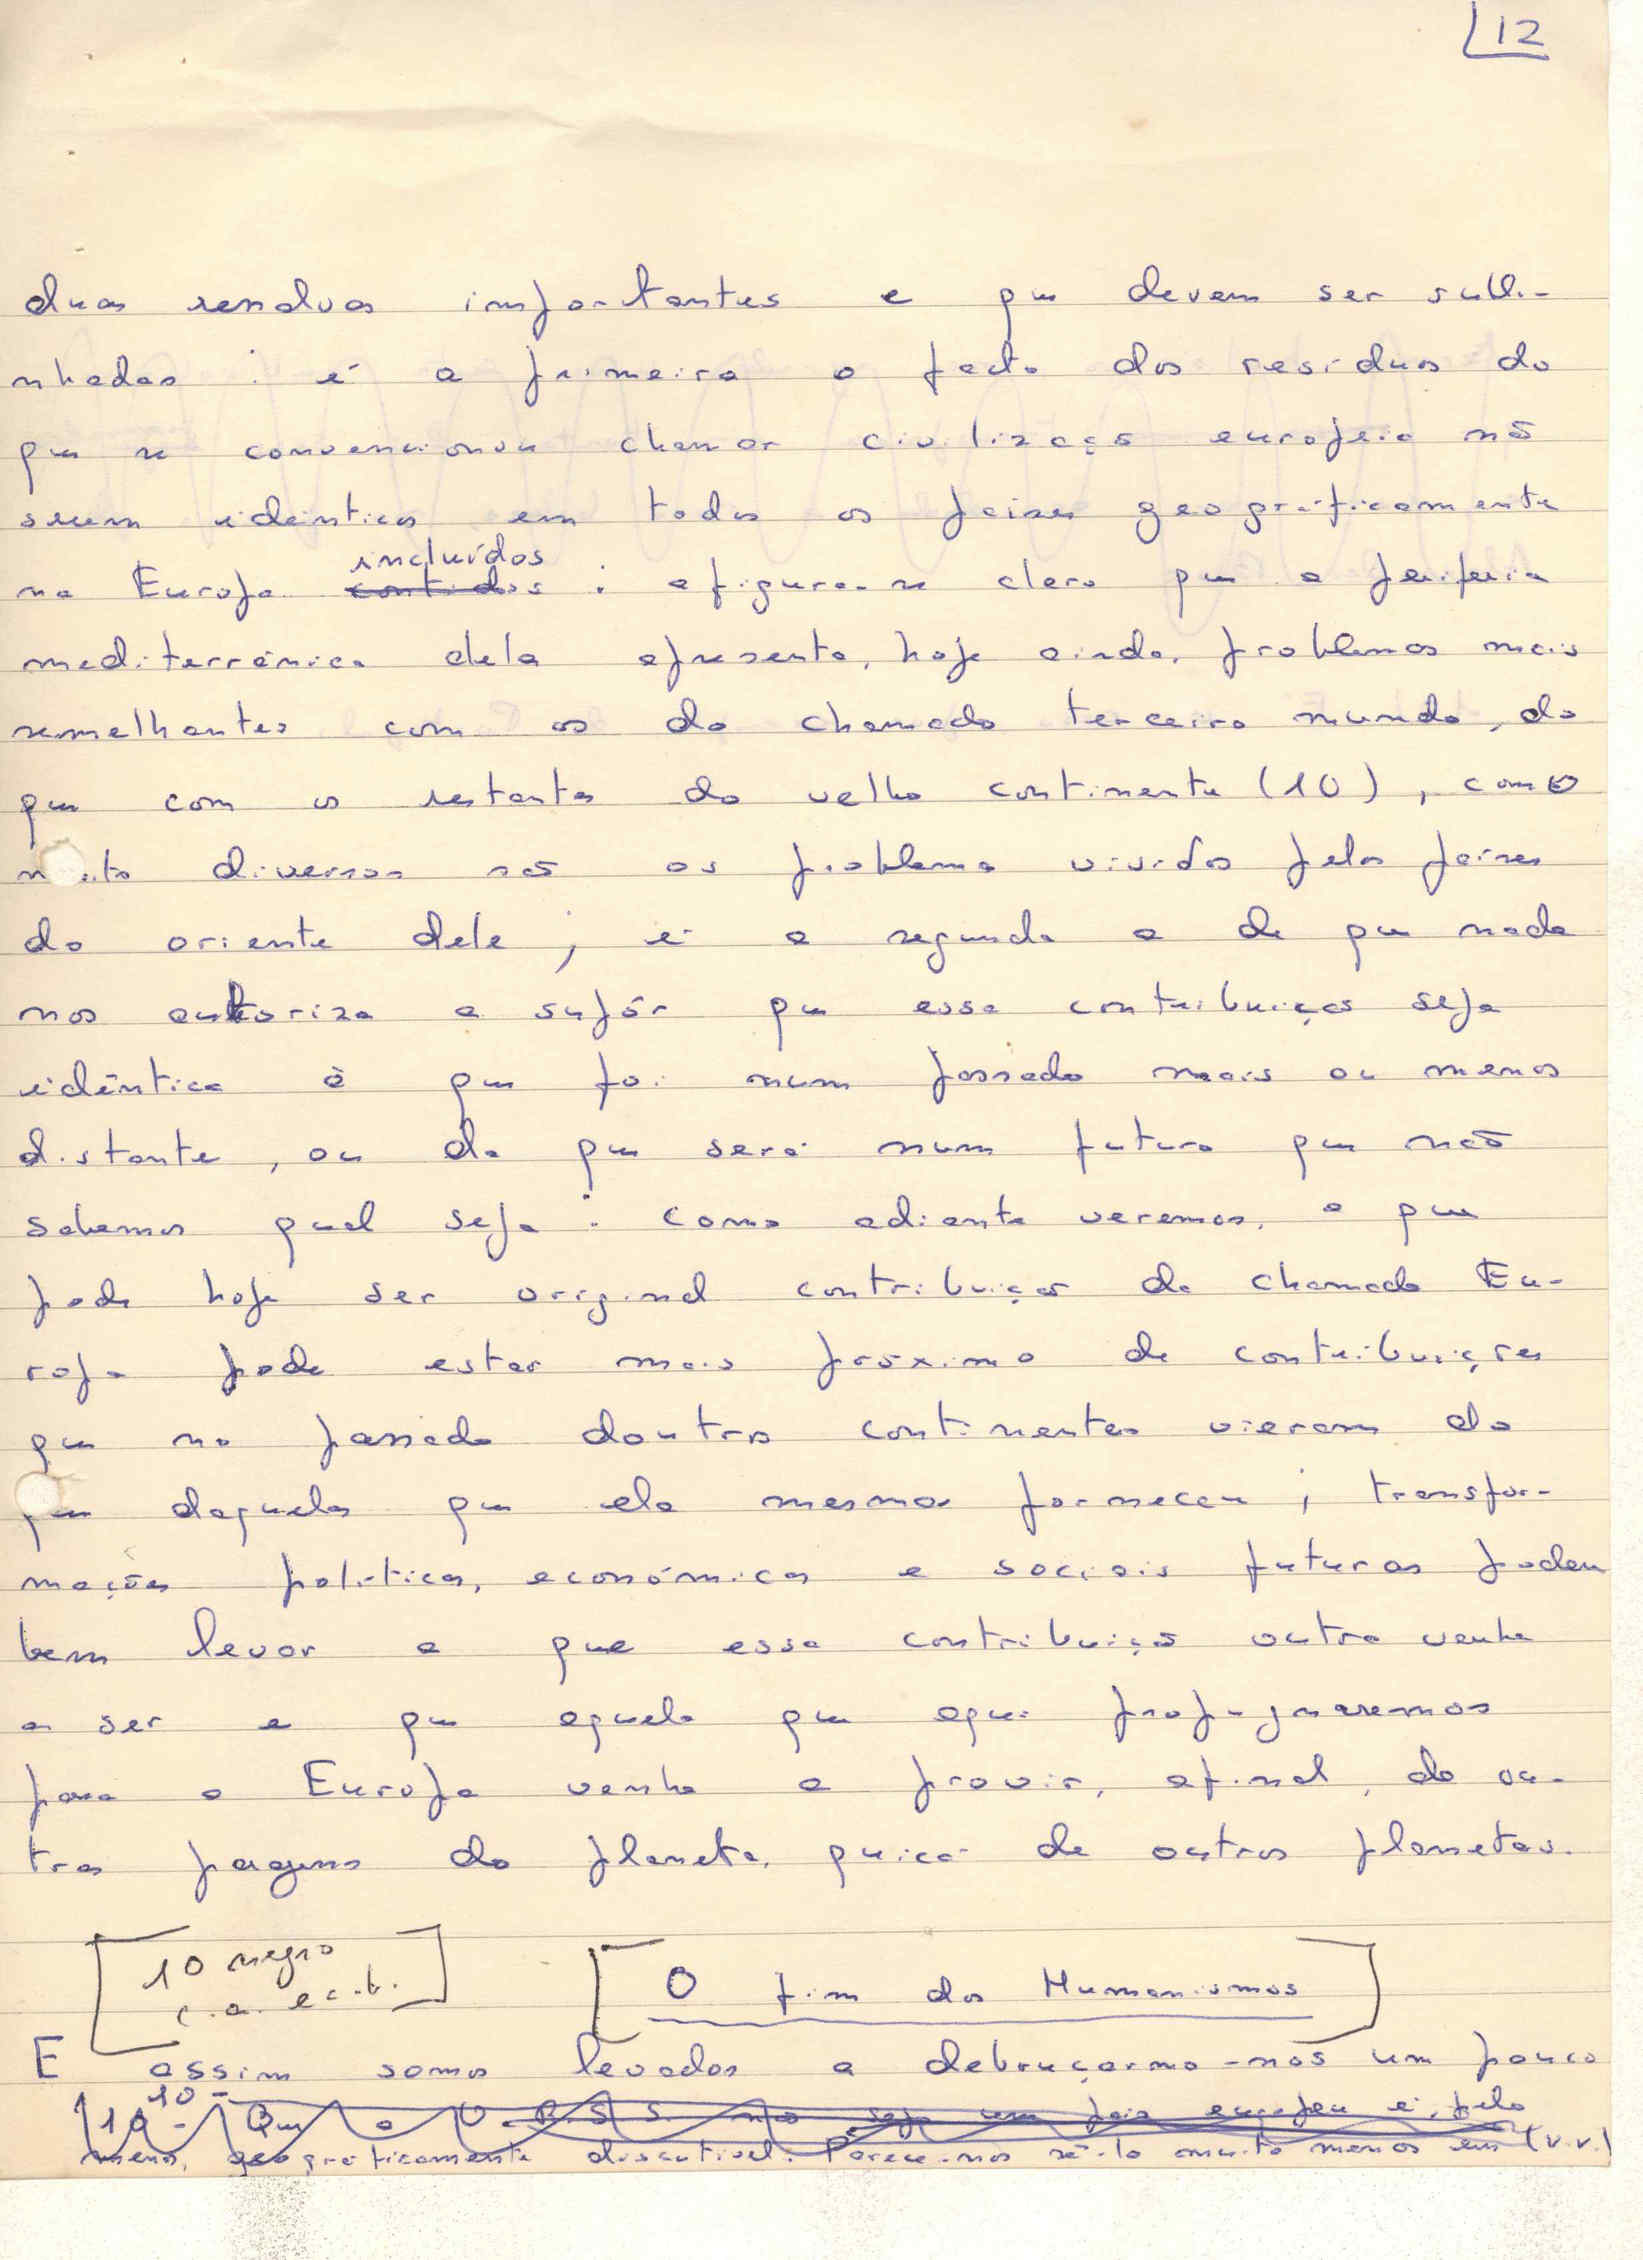 12
duas ressalvas importantes e que devem ser subli-
nhadas : é a primeira o facto dos resíduos do
que se convencionou chamar civilização europeia não
serem idênticos em todos os países geográficamente
incluídos
na Europa contidos : afigura-se claro que a periferia
mediterrânica dela apresenta, hoje ainda, problemas mais
semelhantes com os do chamado terceiro mundo, do
que com os restantes do velho continente (10), como
muito diversos são os problemas vividos pelos países
do oriente dele ; é a segunda a de que nada
nos autoriza a supôr que essa contribuição seja
idêntica à que foi num passado mais ou menos
distante, ou da que será num futuro que não
sabemos qual seja : como adiante veremos, o que
pode hoje ser original contribuição da chamada Eu-
ropa pode estar mais próximo de contribuições
que no passado doutros continentes vieram do
que daquelas que ela mesma forneceu ; transfor-
mações políticas, económicas e sociais futuras podem
bem levar a que essa contribuição outra venha
a ser e que aquela que aqui propugnaremos
para a Europa venha a provir, afinal, de ou-
tras paragens do planeta, quiçá de outros planetas.
10 negro
c.a. e c.b.
O fim dos Humanismos
E assim somos levados a debruçarmo-nos um pouco
10 -
10 - Que a U.R.S.S. não seja um país europeu é, pelo
menos, geográficamente discutível. Parece-nos sê-lo muito menos em (v.v.)